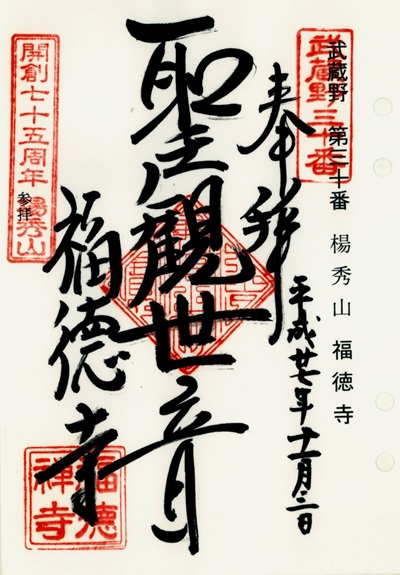 武蔵野 第三十番 楊秀山 福徳寺
武蔵野三十番
奉拝
平成廿七年十一月三日
聖觀世音
福德寺
開創七十五周年 楊秀山
参拝
福德
禅寺